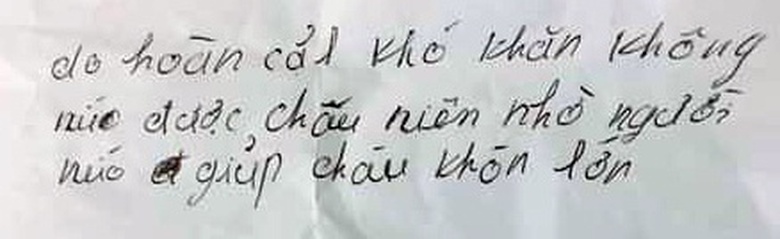 do hoãn cảl khó khăn không
núc được, chãu niên nhờ người
núc giúp chãu khôn lớn